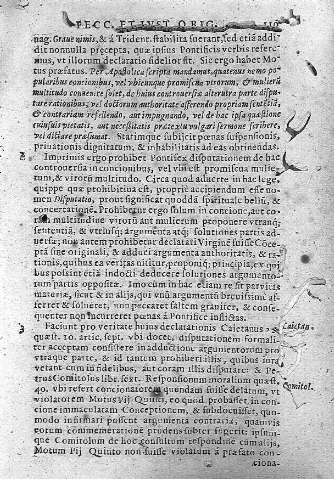 PECC. ET IUST. ORIG.
nag. Grave nimis, & à Trident. stabilita fuerant, sed etiã addit nonnulla præcepta, quæ ipsius Pontificis verbis referemus, vt illorum declaratio fidelior sit. Sic ergo habet Motus præfatus. Per Apostolica scripta mandamus, quatenus nemo popularibus concionibus, vel vbicunque promiscua virorum, & mulierũ
multitudo convenire solet, de huius controversiæ alterutra parte disputare rationibus, vel doctorum authoritate asserendo propriam sentẽtiã,
& contrariam refellendo, aut impugnando, vel de hac ipsa quæstione
cuiusvis pietatis, aut necessitatis prætextu vulgari sermone scribere,
vel dictare præsumat. Statimque subijcit penas suspensionis,
privationis dignitatum, & inhabilitatis ad eas obtinendas.
2 Imprimis ergo prohibet Pontifex disputationem de hac
controversia in concionibus, vel vbi est promiscua mulierum, & virorũ multitudo. Circa quod adverte in hac lege,
quippe quæ prohibitiva est, propriè accipiendum esse nomen Disputatio, pront significat quoddã spirituale bellũ, &
concertationẽ. Prohibetur ergo solum in concione, aut coram multitudine virorũ aut mulierum proponere vtranq;
sententiã, & vtriusq; argumenta atq; solutiones partis adversæ; non autem prohibetur declarati Virginẽ fuisse Conceptã sine originali, & adduci argumenta authoritatis, & rationis,
possint etiã indocti deducere solutiones argumentorum partis oppositæ. Imo cum in hac etiam re sit parvitas
materiæ, sicut & in alijs, qui vnũ argumentũ brevissimè afferret & solveret, non peccaret saltem graviter, & consequenter non incurreret penas à Pontifice inflictas.
3 Faciunt pro veritate huius declarationis Caietanus 2.
quæst. 10. artic. sept. vbi docet, disputationem formaliter acceptam consistere in adductione argumentorum pro
vtraque parte, & id tantem prohiberi illis, quibus iura
vetant cum infidelibus, aut coram illis disputare: & Petrus Comitolus libr. sext. Responsionum moralium quæst.
40. vbi refert concionatorem quendam fuisse delatum, vt
violatorem Motus Pij Quinti, eo quod probasset in concione immaculatam Conceptionem, & subdocuisset, quomodo infirmari possent argumenta contraria, quamvis
eorum commemoratione prudens supersederit: ipsumque Comitolum de hoc consultum respondisse cum alijs,
Motum Pij Quinto non fuisse violatum à præfato con-
ciona-
Caietan.
Comitol.